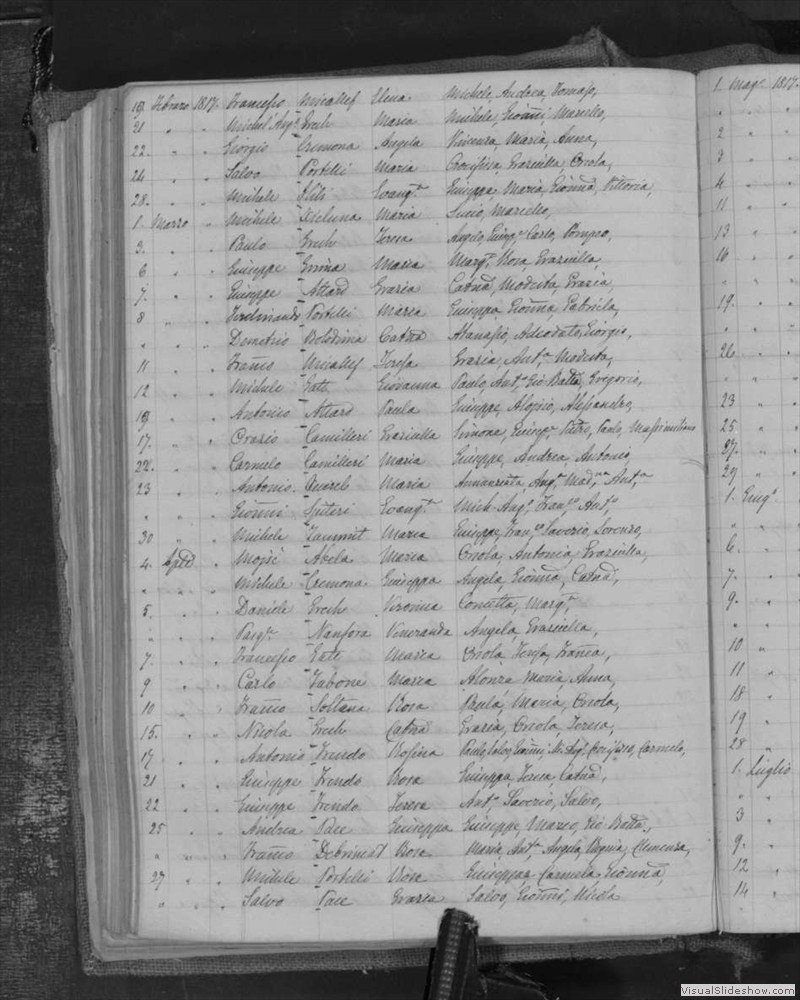 19 Febraro 1817. Francesco Micallef Elena Michele, Andrea, Tomaso,
21 " " Michel'Ang.o Grech Maria Michele, Gioañi, Marcello,
22. " " Giorgio Cremona Angela Vincenza, Maria, Anna,
24 " " Salvo Portelli Maria Graziulla, Orsola,
28. " " Michele Maria, Gioañà, Vittoria,
1. Marzo " Michele Xicluna Maria Lucio, Marcello,
3. " " Paulo Grech Teresa Angelo, Carlo, Pompeo,
6 " " Giuseppe Maria Marg.a Rosa, Graziulla,
7. " " Giuseppe Attard Grazia Catnà, Modesta, Grazia,
8 " " Ferdinando Portelli Maria Giuseppa, Gioañà, Gabriela,
" " " Demetrio Catnà Atanasio, Adeodato, Giorgio,
11 " " Frañco Micallef Teresa Grazia, Ant.a Modesta,
12 " " Michele Gatt Giovanna Paulo, Ant.o Gio Batta, Gregorio,
19 " " Antonio Attard Paula Giuseppe, Aloisio, Alessandro,
17. " " Orazio Camilleri Graziulla Simone, Pietro, Paulo, Massimiliano
22. " " Carmelo Camilleri Maria Giuseppe, Andrea, Antonio,
23 " " Antonio Maria Annunciata, Ang.a Ant.a
" " " Gioañi Spiteri Evang.ta Mich. Ang.o Fran.co Ant.o
30 " " Michele Zammit Maria Giuseppe, Fran.co Saverio, Lorenzo,
4. Aprle " Mojsè Abela Maria Orsola, Antonia, Graziulla,
" " " Michele Cremona Giuseppa Angela, Gioañà, Catnà,
5. " " Daniele Grech Veronica Concetta, Marg.a
" " " Pasq.le Nanfora Veneranda Angela, Graziulla,
7. " " Francesco Gatt Maria Orsola, Teresa, Frañca,
9 " " Carlo Tabone Maria Alonza Maria, Anna,
10 " " Frañco Soltana Rosa Paula, Maria, Orsola,
15. " " Nicola Grech Catnà Grazia, Orsola, Teresa,
17 " " Antonio Xrendo Rosina Paulo, Salvo, Gioañi, Carmelo,
21 " " Giuseppe Xrendo Rosa Giuseppa, Teresa, Catnà,
22 " " Giuseppe Xrendo Teresa Ant.o Saverio, Salvo,
25 " " Andrea Pace Giuseppa Giuseppe, Marco, Gio Batta,
" " " Frañco Debrincat Rosa Maria, Ant.a Angela, Virginia, Clemenza,
27 " " Michele Portelli Rosa Giuseppa, Carmela, Gioañà,
" " " Salvo Pace Grazia Salvo, Gioañi, Nicola
1. Mag.o 1817.
" "
2 "
3 "
4 "
11 "
13 "
16 "
" "
19. "
" "
26 "
" "
23 "
25 "
27. "
29 "
1. Giug.o
" "
6. "
7. "
9. "
" "
10 "
11 "
18 "
19 "
28 "
1. Luglio
" "
3 "
9. "
12 "
14 "
VisualSlideshow.com